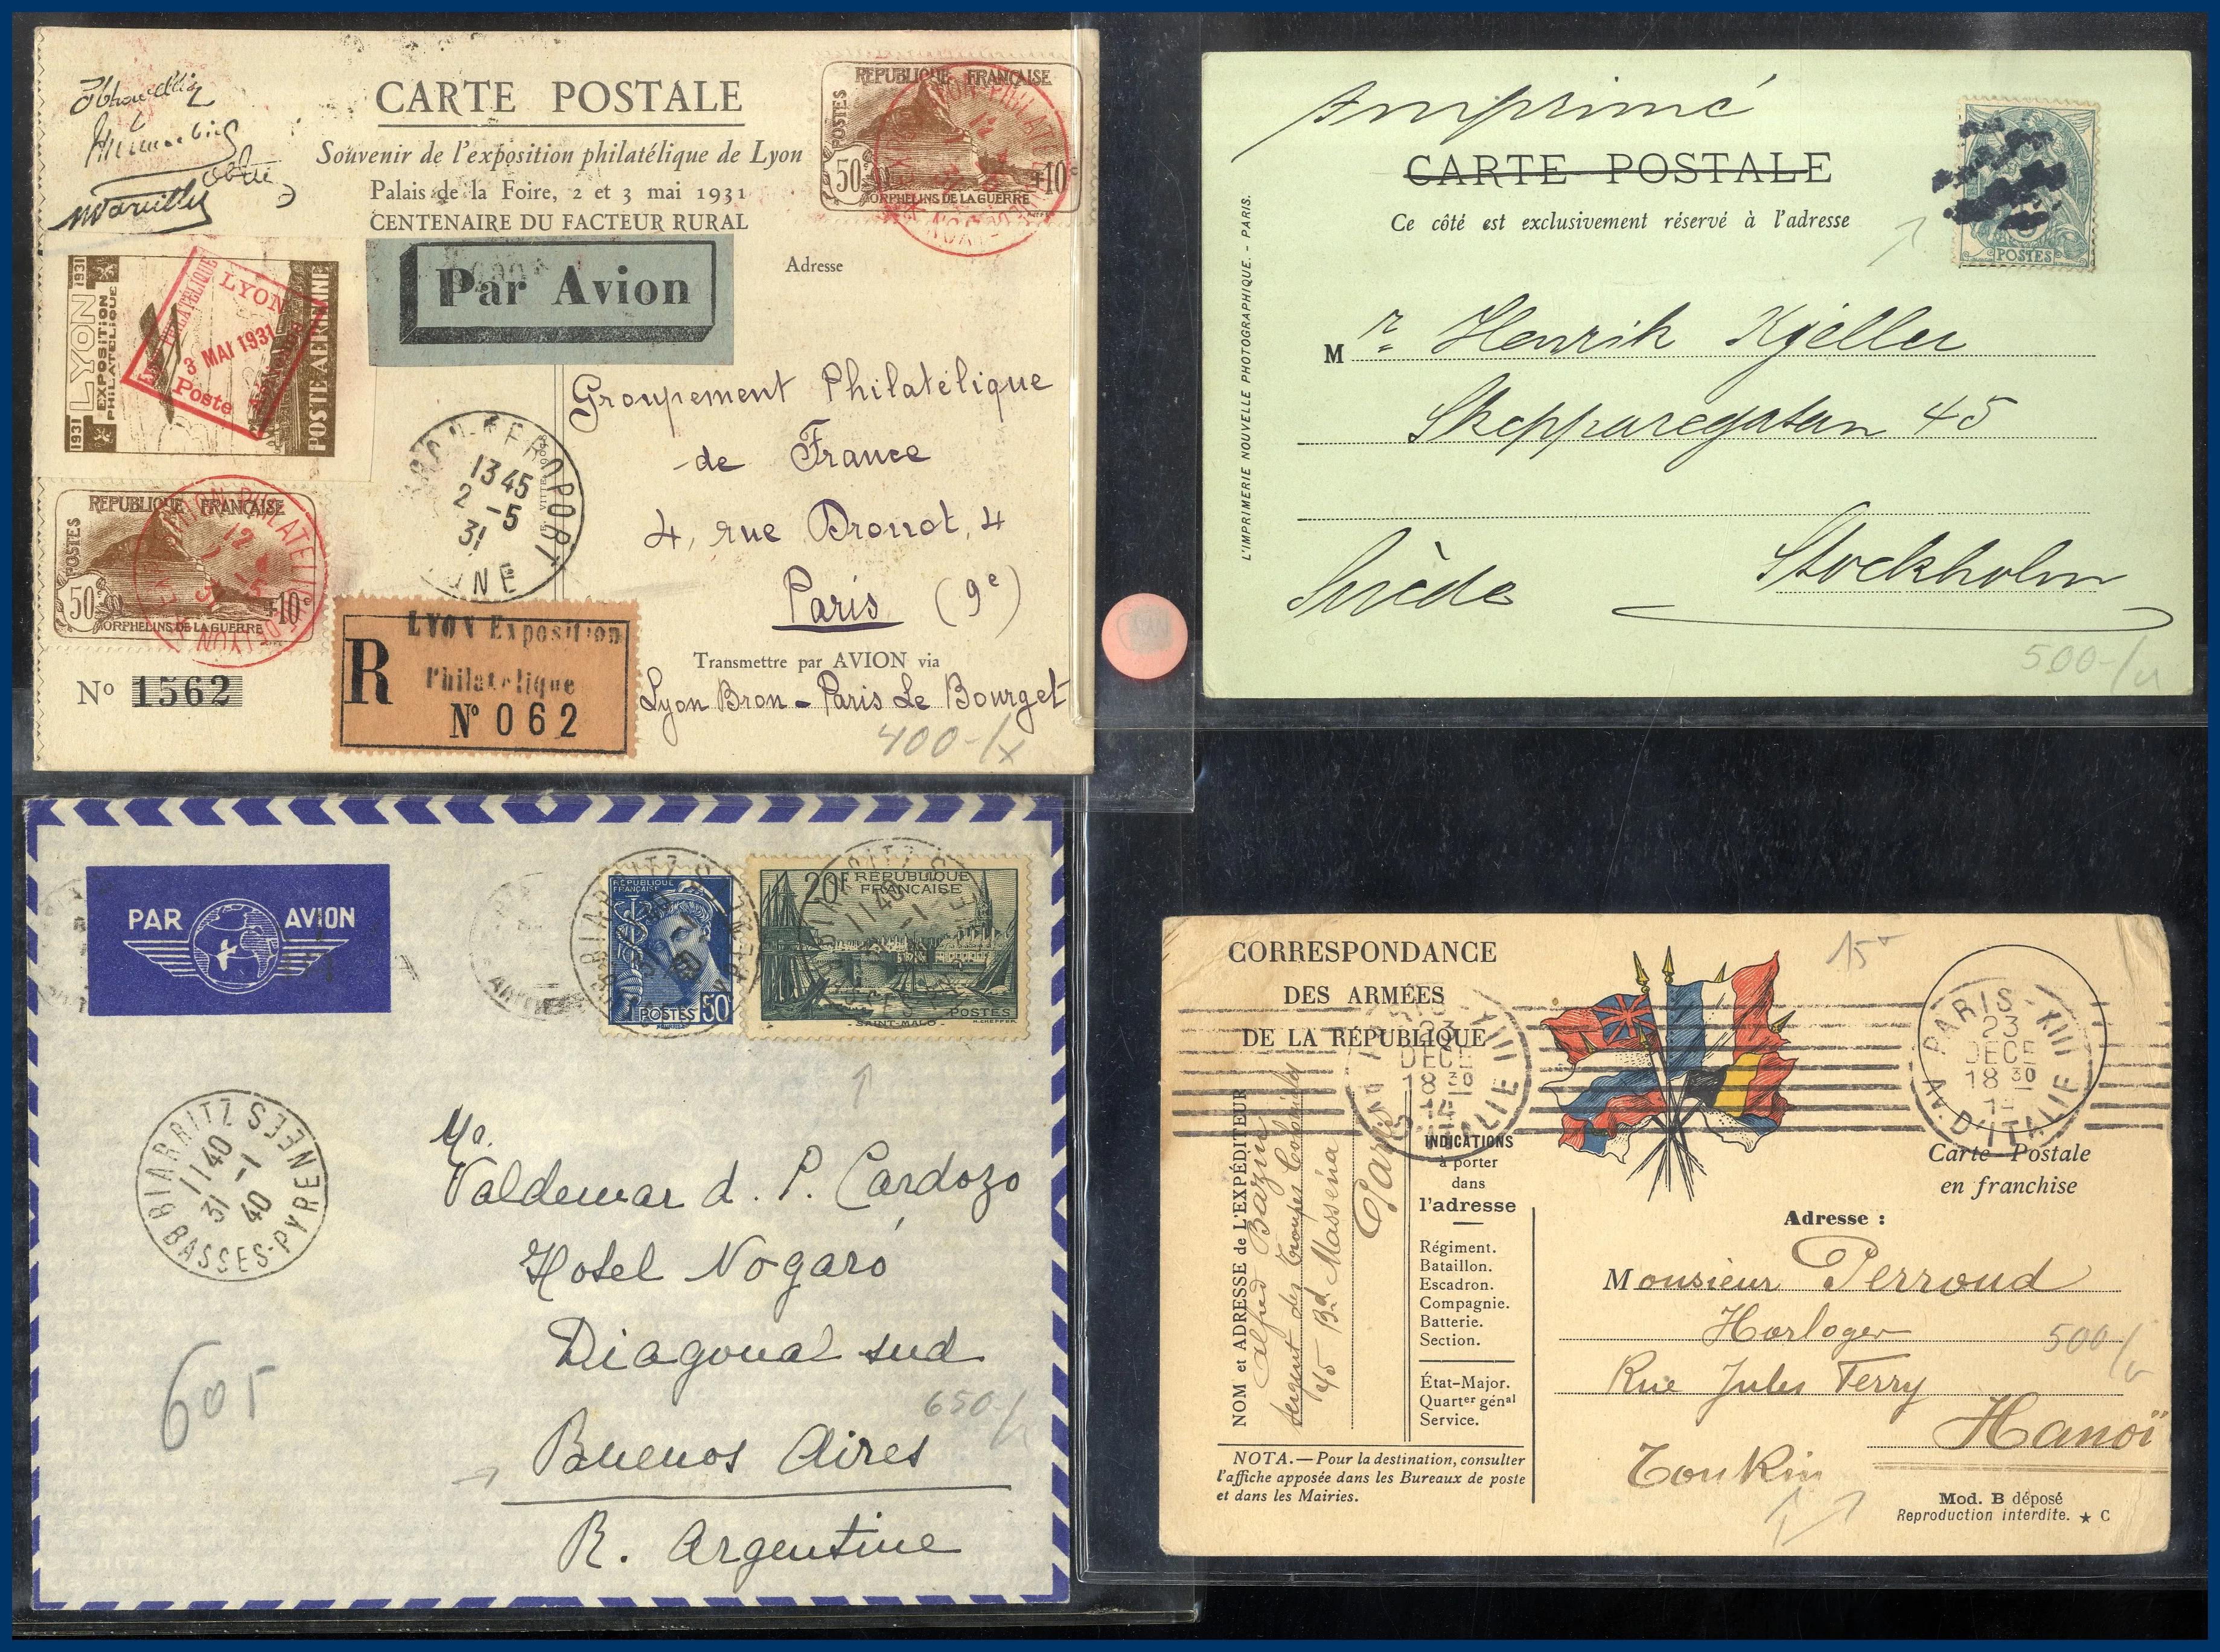 CARTE POSTALE
Souvenir de l'exposition philatélique de Lyon
Palais de la Foire, 2 et 3 mai 1931
CENTENAIRE DU FACTEUR RURAL
REPUBLIQUE FRANÇAISE
POSTES
50c +10c
ORPHELINS DE LA GUERRE
Par Avion
Adresse
1931 LYON 1931
EXPOSITION PHILATELIQUE
POSTE AERIENNE
LYON
3 MAI 1931
Poste
Groupement Philatélique
de France
4, rue Drouot, 4
Paris (9e)
13 45
2 -5
31
REPUBLIQUE FRANÇAISE
POSTES
50c +10c
ORPHELINS DE LA GUERRE
R
LYON Exposition
Philatelique
No 062
No 1562
Transmettre par AVION via
Lyon Bron - Paris Le Bourget
400-/
Imprimé
CARTE POSTALE
Ce côté est exclusivement réservé à l'adresse
POSTES
L'IMPRIMERIE NOUVELLE PHOTOGRAPHIQUE. - PARIS.
Mr Henrik Kjeller
Skepparegatan 45
Stockholm
Suède
500-/
PAR AVION
REPUBLIQUE FRANÇAISE
POSTES 50c
20F REPUBLIQUE
FRANÇAISE
- SAINT-MALO -
POSTES
BIARRITZ
11 40
31 -1
40
BASSES-PYRENEES
Valdemar d. P. Cardozo
Hotel Nogaró
Diagonal sud
650-/
Buenos Aires
R. Argentine
605
CORRESPONDANCE
DES ARMÉES
DE LA RÉPUBLIQUE
15
PARIS XIII
23
DECE
18 30
Av. D'ITALIE
Carte Postale
en franchise
NOM et ADRESSE de L'EXPÉDITEUR
Alfred Bazin
Sergent des Troupes Coloniales
45 Bd Masséna
Paris
INDICATIONS
à porter
dans
l'adresse
Régiment.
Bataillon.
Escadron.
Compagnie.
Batterie.
Section.
État-Major.
Quartier génal
Service.
NOTA.—Pour la destination, consulter
l'affiche apposée dans les Bureaux de poste
et dans les Mairies.
Adresse :
Monsieur Perroud
Horloger
500-/
Rue Jules Ferry
Hanoï
Tonkin
Mod. B déposé
Reproduction interdite. ★ C